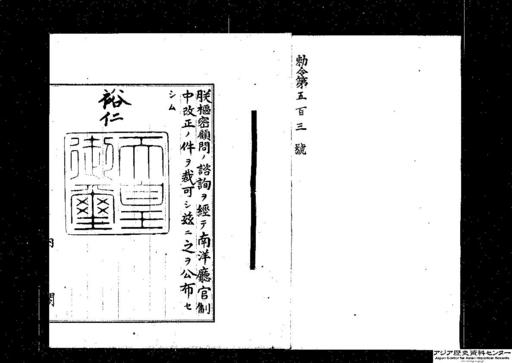 勅令第五百三號
朕樞密顧問ノ諮詢ヲ經テ南洋廳官制
中改正ノ件ヲ裁可シ玆ニ之ヲ公布セ
シム
裕仁
天皇
御璽
内
閣
アジア歴史資料センター
Japan Center for Asian Historical Records